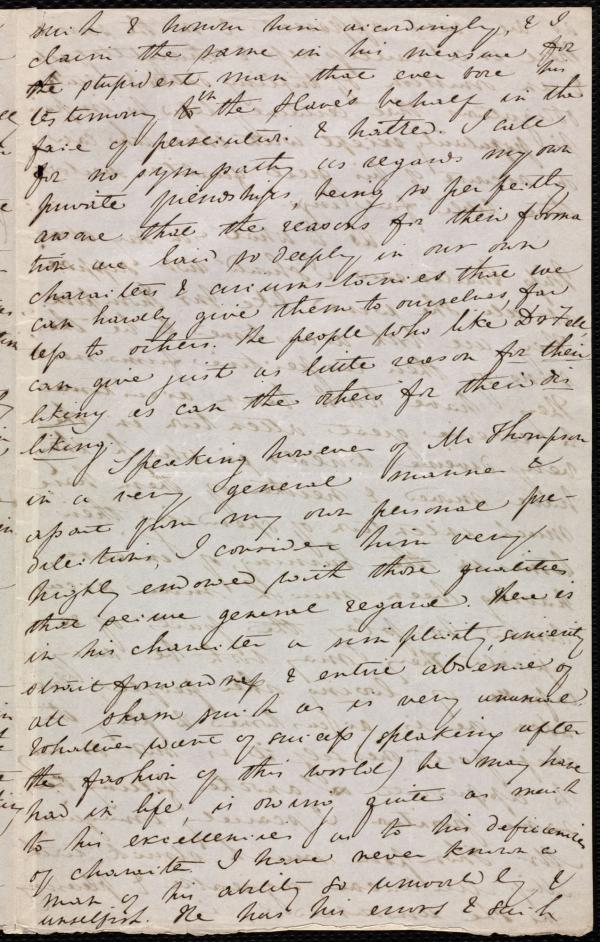 such & honour him accordingly, & I
claim the same in his measure for
the stupidest man that ever bore his
testimony in the slave's behalf in the
face of persecution & hatred. I call
for no sympathy as regards my own
private friendships, being so perfectly
aware that the reasons for their forma
tion are laid so deeply in our own
characters & circumstances that we
can hardly give them to ourselves, far
less to others. The people who like Dr Fell
can give just as little reason for their
liking as can the others for their dis
liking.
Speaking however of Mr Thompson
in a very general manner &
apart from my own personal pre-
dilections, I consider him very
highly endowed with those qualities
that secure general regard. There is
in his character a simplicity, sincerity
strait forwardness & entire absence of
all sham such as is very unusual.
Whatever want of success (speaking after
the fashion of this world) he may have
had in life, is owing quite as much
to his excellencies as to his deficiencies
of character. I have never known a
man of his ability so unworldly &
unselfish. He has his errors & such